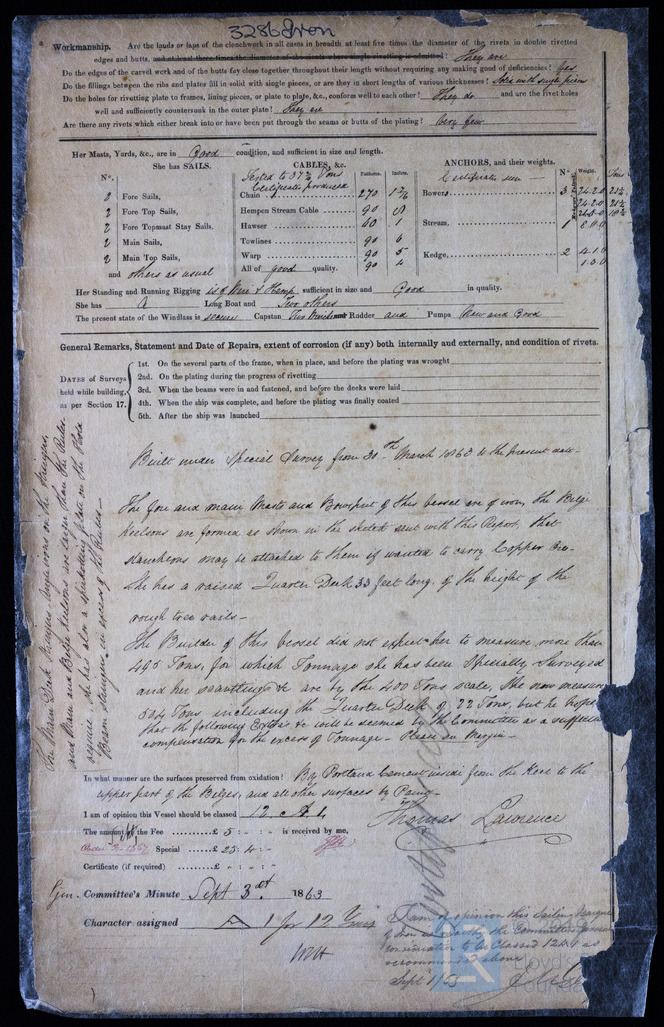 3286 Iron
Workmanship. Are the lands or laps of the clenchwork in all cases in breadth at least five times the diameter of the rivets in double rivetted
edges and butts, and at least three times the diameter of the rivets where single rivetting is admitted? They are
Do the edges of the carvel work and of the butts fay close together throughout their length without requiring any making good of deficiencies? Yes
Do the fillings between the ribs and plates fill in solid with single pieces, or are they in short lengths of various thicknesses? Solid with single pieces
Do the holes for rivetting plate to frames, lining pieces, or plate to plate, &c., conform well to each other? They do and are the rivet holes
well and sufficiently countersunk in the outer plate? They are
Are there any rivets which either break into or have been put through the seams or butts of the plating? Very few
Her Masts, Yards, &c., are in Good condition, and sufficient in size and length.
She has SAILS.
N°.
2 Fore Sails,
2 Fore Top Sails,
2 Fore Topmast Stay Sails,
2 Main Sails,
2 Main Top Sails,
and others as usual
CABLES, &c. Fathoms. Inches.
Tested to 37 Tons
Certificate produced
Chain 270
Hempen Stream Cable 90 8
Hawser 60 1
Towlines 90 6
Warp 90 5
All of good quality. 90 4
ANCHORS, and their weights.
N° Weight. Tons
Certificate seen
Bowers 3 24.2.0
24.2.0
Stream, 1
Kedge, 2
Her Standing and Running Rigging is of Wire & Hemp sufficient in size and Good in quality.
She has A Long Boat and Two others
The present state of the Windlass is secure Capstan Rudder and Pumps New and Good
General Remarks, Statement and Date of Repairs, extent of corrosion (if any) both internally and externally, and condition of rivets.
DATES of Surveys
held while building,
as per Section 17.
1st. On the several parts of the frame, when in place, and before the plating was wrought
2nd. On the plating during the progress of rivetting
3rd. When the beams were in and fastened, and before the decks were laid
4th. When the ship was complete, and before the plating was finally coated
5th. After the ship was launched
Built under Special Survey from 30th March 1863 to the present date.
The fore and main Masts and Bowsprit of this vessel are of iron, the Bilge
Keelsons are formed as shown in the sketch sent with this Report, that
stancheons may be attached to them if wanted to carry Copper Ore.
She has a raised Quarter Deck 33 feet long, of the height of the
rough tree rails.
The Builder of this vessel did not expect her to measure more than
495 Tons, for which Tonnage she has been Specially Surveyed
and her scantlings &c are by the 400 Tons scale, She now measures
504 Tons including the Quarter Deck of 22 Tons, but he hopes
that the following Extras &c will be deemed by the Committee as a sufficient
compensation for the excess of Tonnage. Please see Margin.
The Main Deck Stringer Angle irons on the Stringers,
and Main and Bilge keelsons are larger than the Rules
require. She has also a Spirketting plate on the Hold
Beam stringer, in excess of the Rules.
In what manner are the surfaces preserved from oxidation? By Portland Cement inside from the Keel to the
upper part of the Bilges, and all other surfaces by Paint.
I am of opinion this Vessel should be classed 12 A 1.
The amount of the Fee £ 5 : - : - is received by me,
Special £ 25 : 4 : -
Certificate (if required) £ - : - : -
Thomas Lawrence
Committee's Minute Sept 3rd 1863
Character assigned A 1 for 12 Years
I am of opinion this Sailing
of Iron is worthy the Committee's
consideration to be Classed 12A1 as
recommended above
Sept 1/63
Lloyd's